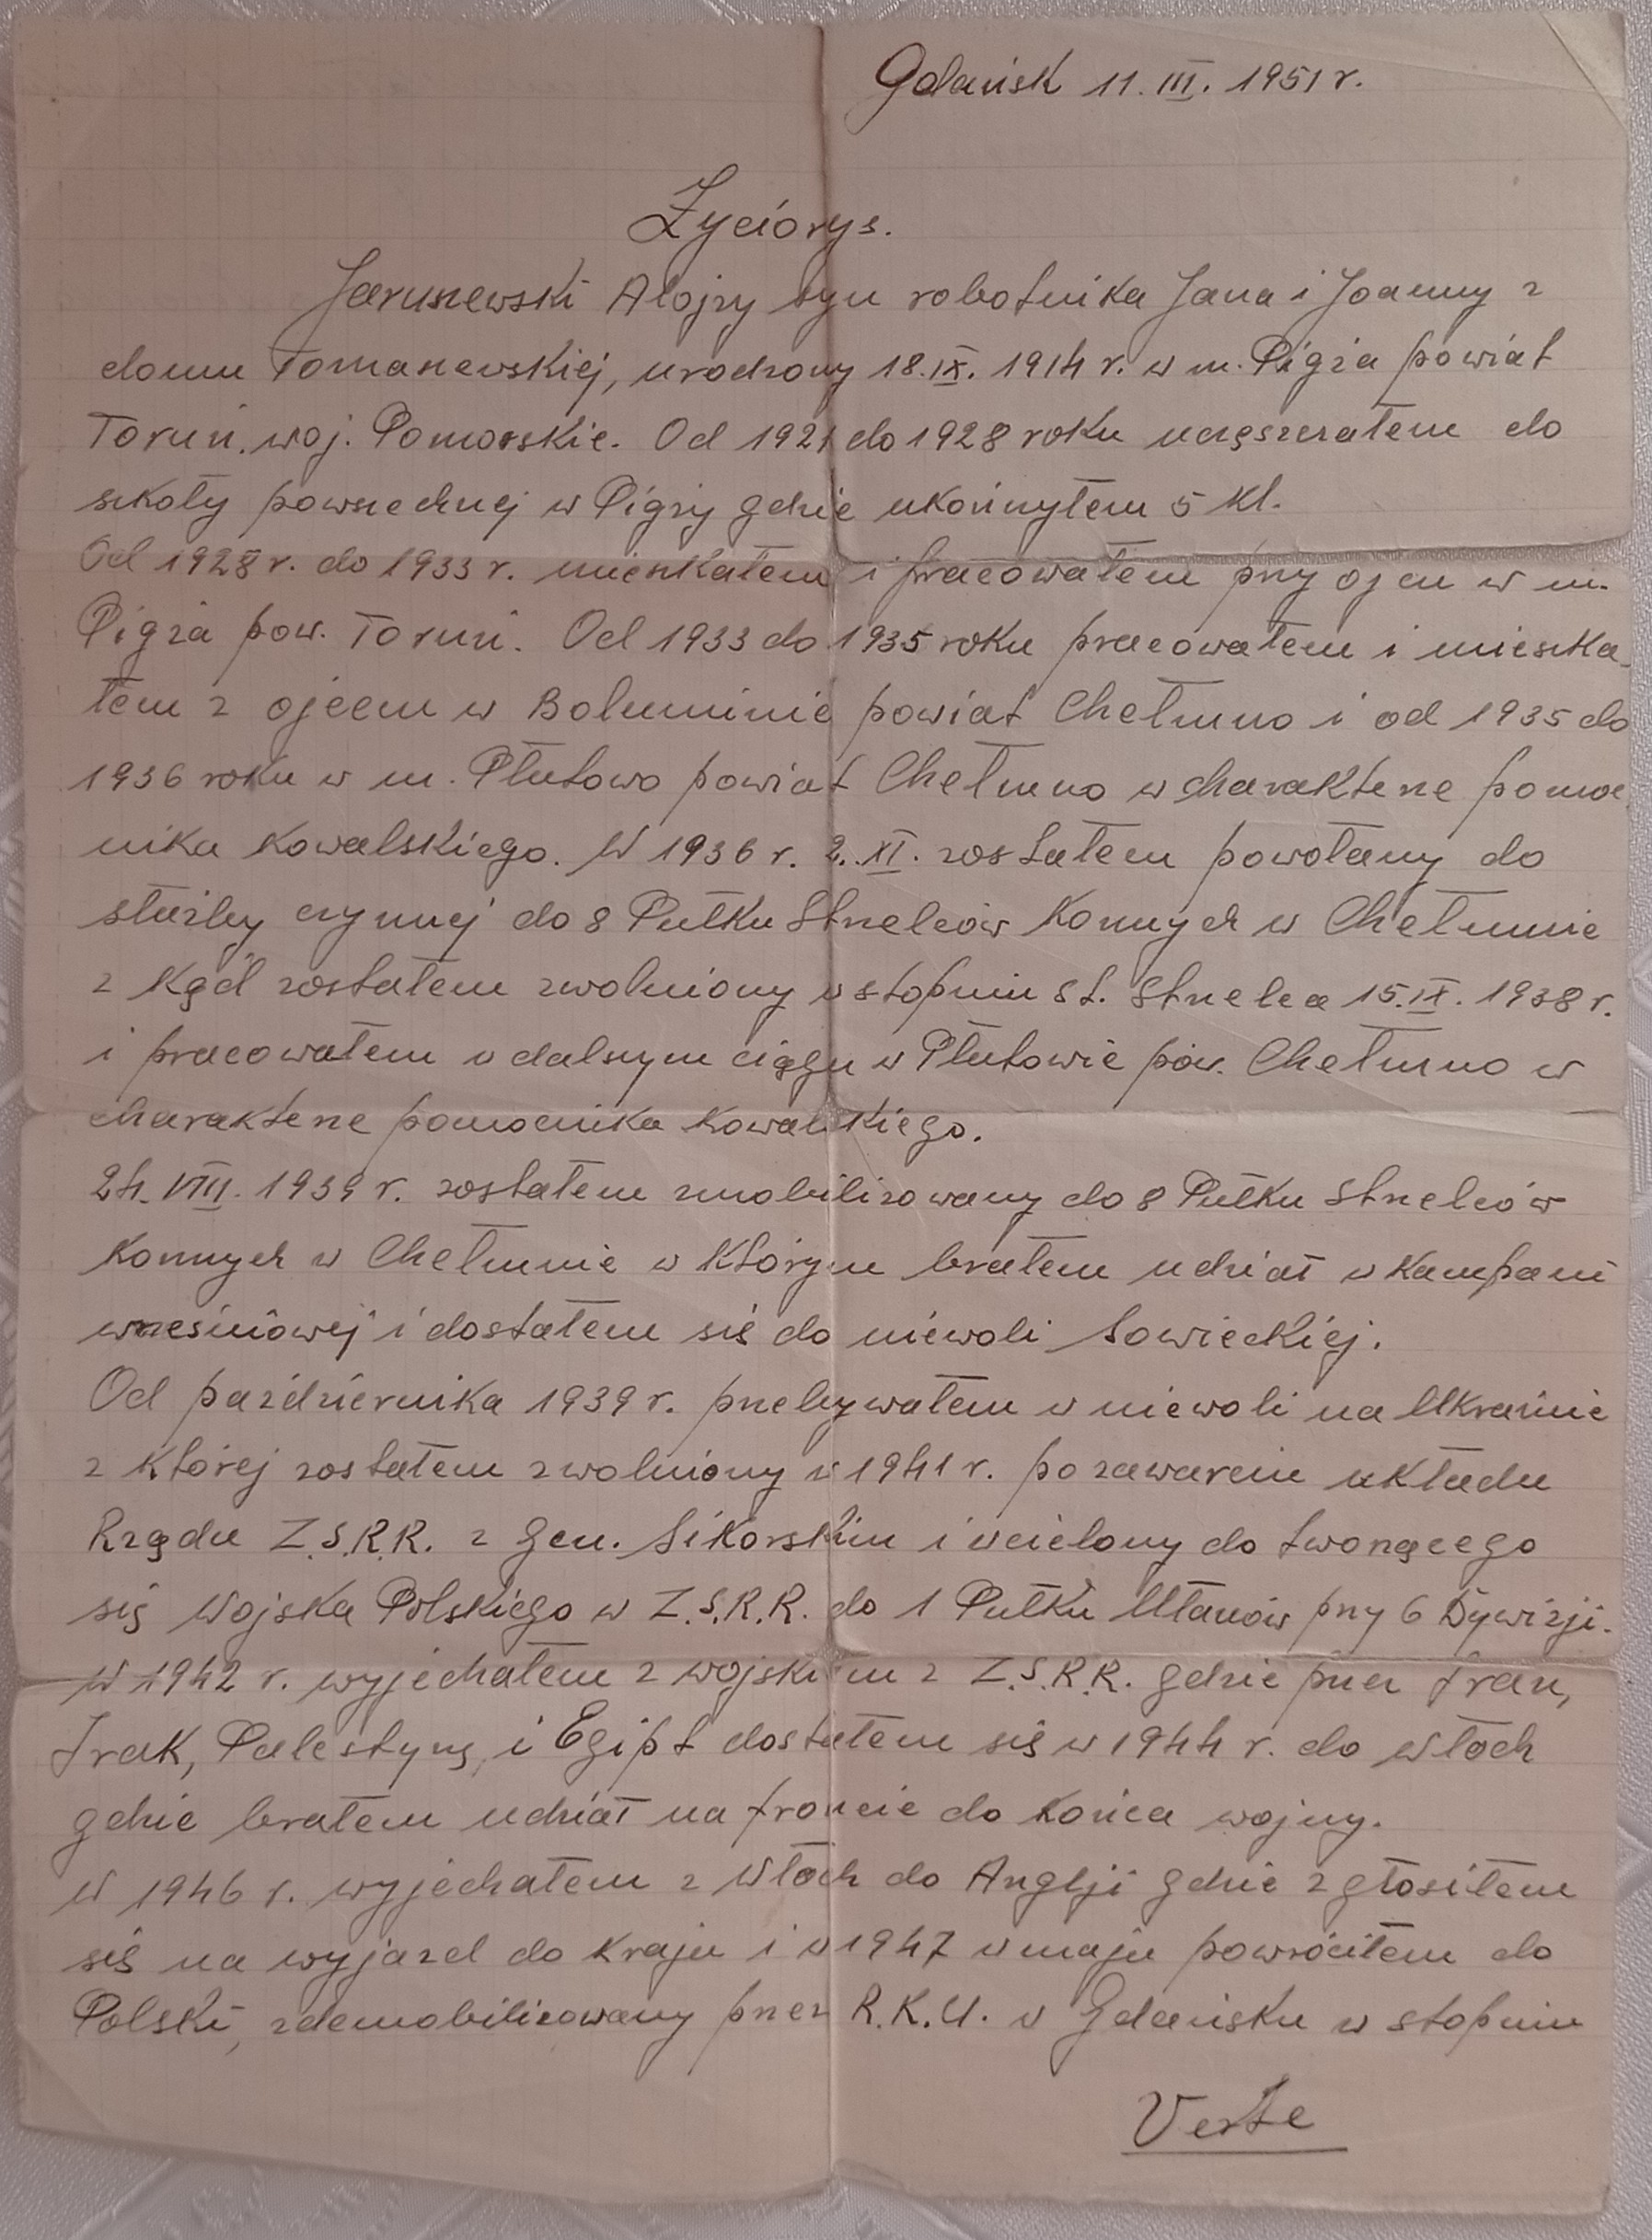 Gdańsk 11. III. 1951 r.
Życiorys.
Jaruszewski Alojzy syn robotnika Jana i Joanny z
domu Tomaszewskiej, urodzony 18.IX. 1914 r. w m. Pigża powiat
Toruń. woj. Pomorskie. Od 1921 do 1928 roku uczęszczałem do
szkoły powszechnej w Pigży gdzie ukończyłem 5 kl.
Od 1928 r. do 1933 r. mieszkałem i pracowałem przy ojcu w m.
Pigża pow. Toruń. Od 1933 do 1935 roku pracowałem i mieszka-
łem z ojcem w Boluminie powiat Chełmno i od 1935 do
1936 roku w m. Płutowo powiat Chełmno w charakterze pomoc
nika kowalskiego. W 1936 r. 2. XI. zostałem powołany do
służby czynnej do 8 Pułku Strzelców Konnych w Chełmnie
z kąd zostałem zwolniony w stopniu st. Strzelca 15.IX. 1938 r.
i pracowałem w dalszym ciągu w Płutowie pow. Chełmno w
charakterze pomocnika kowalskiego.
24. VIII. 1939 r. zostałem zmobilizowany do 8 Pułku Strzelców
Konnych w Chełmnie w którym brałem udział w kampani
wrześniowej i dostałem się do niewoli Sowieckiej.
Od października 1939 r. przebywałem w niewoli na Ukrainie
z której zostałem zwolniony w 1941 r. po zawarciu układu
Rządu Z.S.R.R. z Gen. Sikorskim i wcielony do tworzącego
się Wojska Polskiego w Z.S.R.R. do 1 Pułku Ułanów przy 6 Dywizji.
W 1942 r. wyjechałem z wojskiem z Z.S.R.R. gdzie przez Iran,
Irak, Palestynę, i Egipt dostałem się w 1944 r. do Włoch
gdzie brałem udział na froncie do końca wojny.
W 1946 r. wyjechałem z Włoch do Anglji gdzie zgłosiłem
się na wyjazd do kraju i w 1947 w maju powróciłem do
Polski, zdemobilizowany przez R.K.U. w Gdańsku w stopniu
Verte